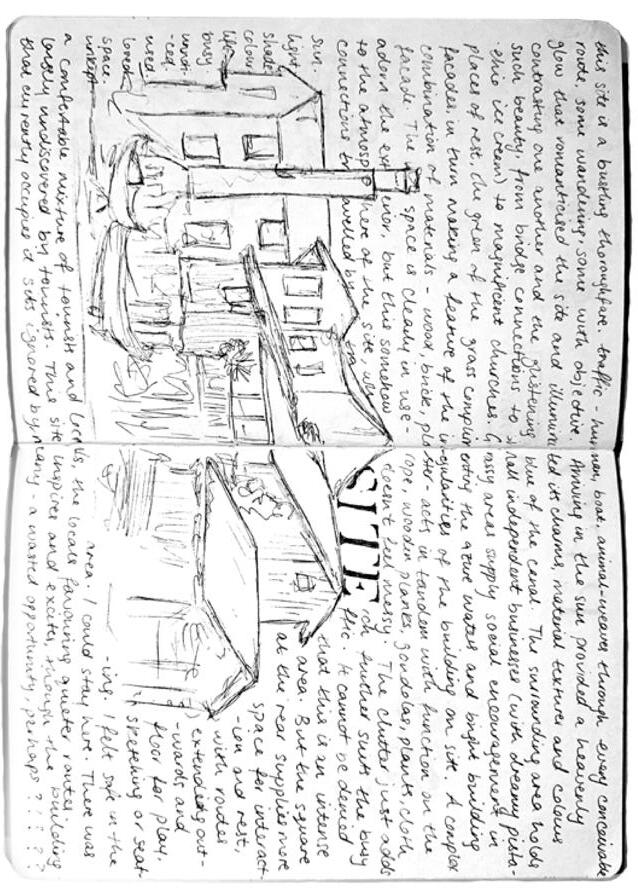 SITE
this site is a bustling thoroughfare. traffic - human, boat, animal - weaves through every conceivable
route, some wandering, some with objective. Arriving in the sun provided a heavenly
glow that romanticised the site and illuminated its charms, material textures and colours
contrasting one another and the glistening blue of the canal. The surrounding area holds
such beauty from bridge connections to small independent businesses (with dreamy pista-
-chio ice cream) to magnificent churches. Grassy areas supply social encouragement in
places of rest, the green of the grass complimenting the azure waters and bright building
facades in turn making a feature of the irregularities of the building on site. A complex
combination of materials - wood, brick, plaster - acts in tandem with function on the
facade. The space is clearly in use - rope, wooden planks, gondolas, plants, cloth
adorn the exterior, but this somehow doesn't feel messy. The clutter just adds
to the atmosphere of the site which further suits the busy
connections travelled by traffic. It cannot be denied
sun.
light
shade
colour
life
busy
unnoti-
-ced.
used
loved
space.
unkept
that this is an intense
area. But the square
at the rear supplies more
space for interact-
-ion and rest,
with routes
extending out-
-wards, and
floor for play,
sketching or seat-
-ing. I felt safe in the
area. I could stay here. There was
a comfortable mixture of tourists and locals, the locals favouring quieter routes
largely undiscovered by tourists. This site inspires and excites, though the building
that currently occupies it sits ignored by many - a wasted opportunity perhaps ? ! ? ?